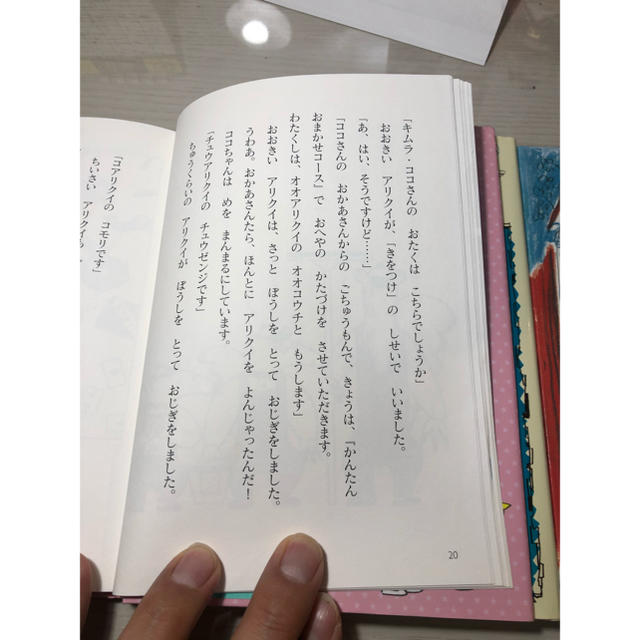 「キムラ・ココさんの　おたくは　こちらでしょうか」
おおきい　アリクイが、「きをつけ」の　しせいで　いいました。
「あ、はい、そうですけど……」
「ココさんの　おかあさんからの　ごちゅうもんで、きょうは、『かんたん
おまかせコース』で　おへやの　かたづけを　させていただきます。
わたくしは、オオアリクイの　オオコウチと　もうします」
おおきい　アリクイは、さっと　ぼうしを　とって　おじぎをしました。
うわあ。おかあさんたら、ほんとに　アリクイを　よんじゃったんだ！
ココちゃんは　めを　まんまるにしています。
「チュウアリクイの　チュウゼンジです」
ちゅうくらいの　アリクイが　ぼうしを　とって　おじぎをしました。
20
「コアリクイの　コモリです」
ちいさい　アリクイも